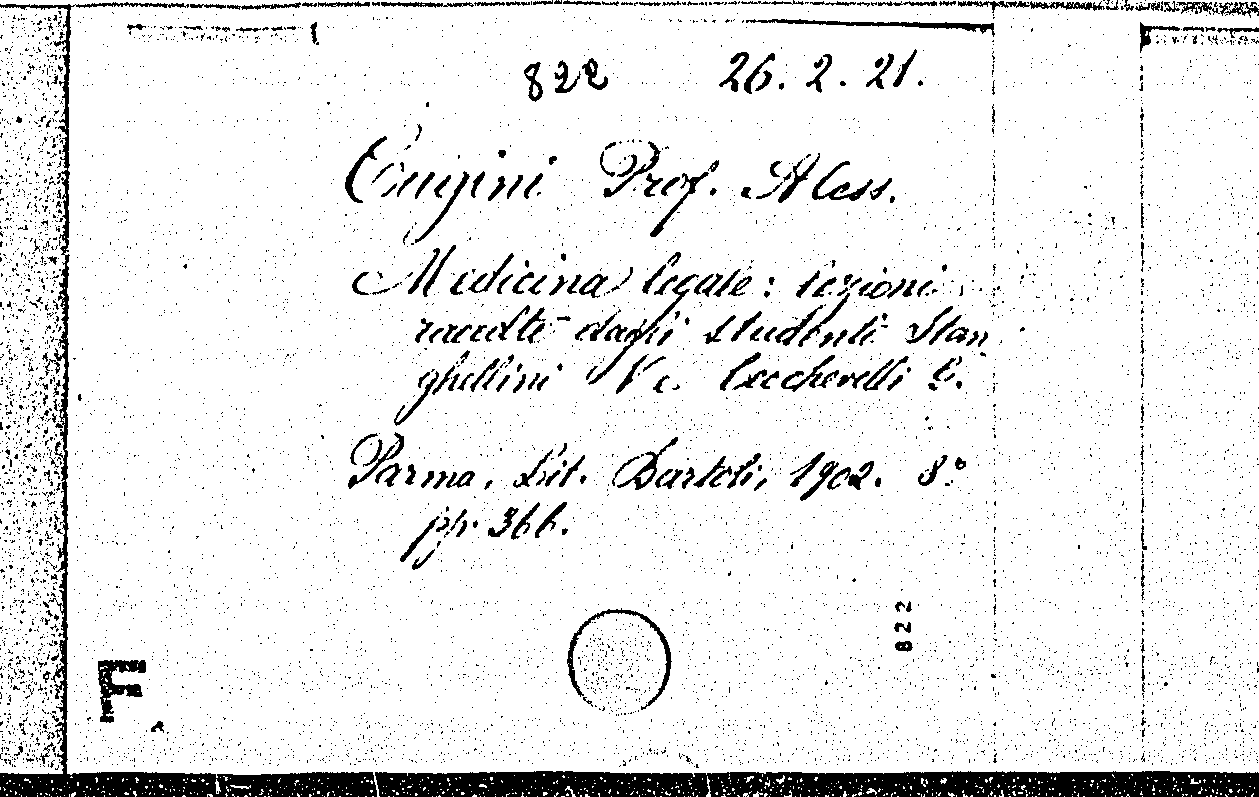 822 26. 2. 21.
Prof. Aless.
Medicina legale: lezioni
raccolte dagli studenti Stan
ghellini V e Ceccherelli G.
Parma, Lit. Bartoli, 1902. 8°
pp. 366.
822
F